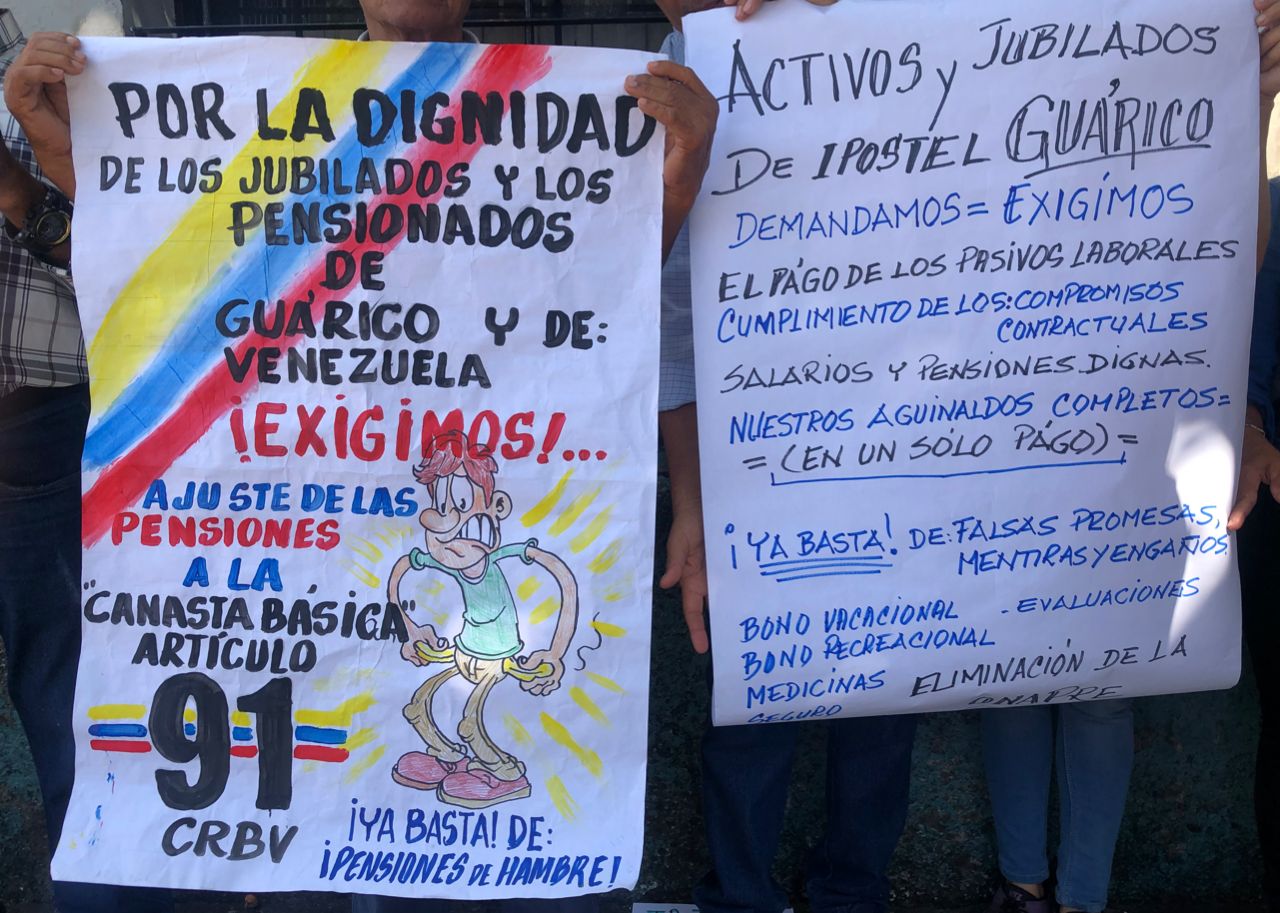 POR LA DIGNIDAD
DE LOS JUBILADOS Y LOS
PENSIONADOS
DE
GUÁRICO Y DE:
VENEZUELA
¡EXIGIMOS!...
AJUSTE DE LAS
PENSIONES
A LA
"CANASTA BÁSICA"
ARTÍCULO
91
CRBV
¡YA BASTA! DE:
¡PENSIONES DE HAMBRE!
ACTIVOS y JUBILADOS
DE IPOSTEL GUÁRICO
DEMANDAMOS = EXIGÍMOS
EL PÁGO DE LOS PASIVOS LABORALES
CUMPLIMIENTO DE LOS: COMPROMISOS
CONTRACTUALES
SALARIOS Y PENSIONES DIGNAS.
NUESTROS AGUINALDOS COMPLETOS =
= (EN UN SÓLO PÁGO) =
¡YA BASTA! DE: FALSAS PROMESAS,
MENTIRAS Y ENGAÑOS
BONO VACACIONAL - EVALUACIONES
BONO RECREACIONAL
MEDICINAS ELIMINACIÓN DE LA
SEGURO ONAPRE